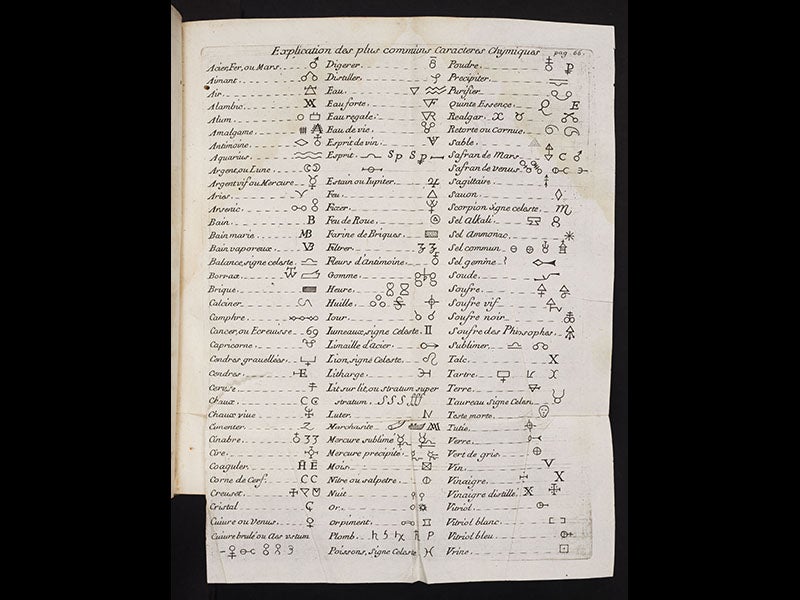 Explication des plus communs Caracteres Chymiques pag. 66.
Acier, Fer, ou Mars
Aimant
Air
Alambic
Alum
Amalgame
Antimoine
Aquarius
Argent ou Lune
Argent vif ou Mercure
Aries
Arsenic
Bain B
Bain marie MB
Bain vaporeux VB
Balance, signe celeste
Borrax
Brique
Calciner
Camphre
Cancer, ou Ecreuisse 69
Capricorne
Cendres grauellées
Cendres E
Ceruse
Chaux C
Chaux viue
Cimenter
Cinabre 33
Cire
Coaguler H E
Corne de Cerf CC
Creuset
Cristal
Cuiure ou Venus
Cuiure brulé ou Aes vstum
Digerer
Distiller
Eau
Eau forte
Eau regale
Eau de vie
Esprit de vin V
Esprit Sp Sp
Estain ou Iupiter
Feu
Fixer
Feu de Roue
Farine de Briques
Filtrer
Fleurs d'Antimoine
Gomme
Heure
Huille
Iour
Iumeaux, signe Celeste II
Limaille d'Acier
Lion, signe Celeste
Litharge
Lit sur lit, ou stratum super
stratum SSS fff
Luter
Marchasite
Mercure sublimé
Mercure precipité
Mois
Nitre ou salpetre
Nuit
Or
orpiment
Plomb
Poissons, Signe Celeste
Poudre
Precipiter
Purifier
Quinte Essence E
Realgar
Retorte ou Cornue
Sable
Safran de Mars
Safran de venus
Sagittaire
Sauon
Scorpion signe celeste
Sel Alkali
Sel Ammoniac
Sel commun
Sel gemme
Soude
Soufre
Soufre vif
Soufre noir
Soufre des Philosophes
Sublimer
Talc X
Tartre
Terre
Taureau Signe Celes.
Teste morte
Tutie
Verre
Vert de gris
Vin V
Vinaigre X
Vinaigre distillé X
Vitriol
Vitriol blanc
Vitriol bleu
Vrine